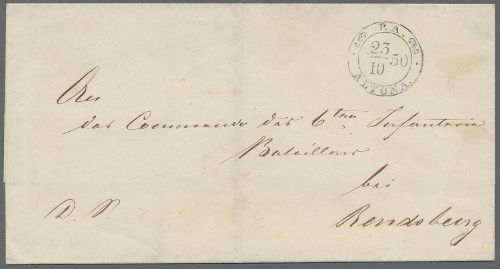 P. A.
23
10
50
ALTONA.
An
das Commando des 6ten Infanterie
Bataillons
bei
D. S.
Rendsburg